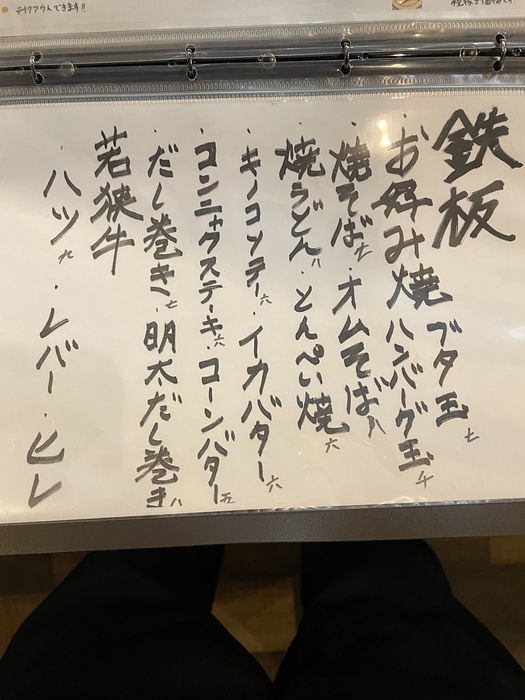 テイクアウトできます!!
鉄板
・お好み焼 ブタ玉 七
ハンバーグ玉 千
・焼そば 七 ・オムそば 八
・焼うどん 八 ・とんぺい焼 六
・キノコソテー 六 ・イカバター 六
・コンニャクステーキ 六 ・コーンバター 五
・だし巻き 七 ・明太だし巻き 八
若狭牛
・ハツ 九 ・レバー ・ヒレ